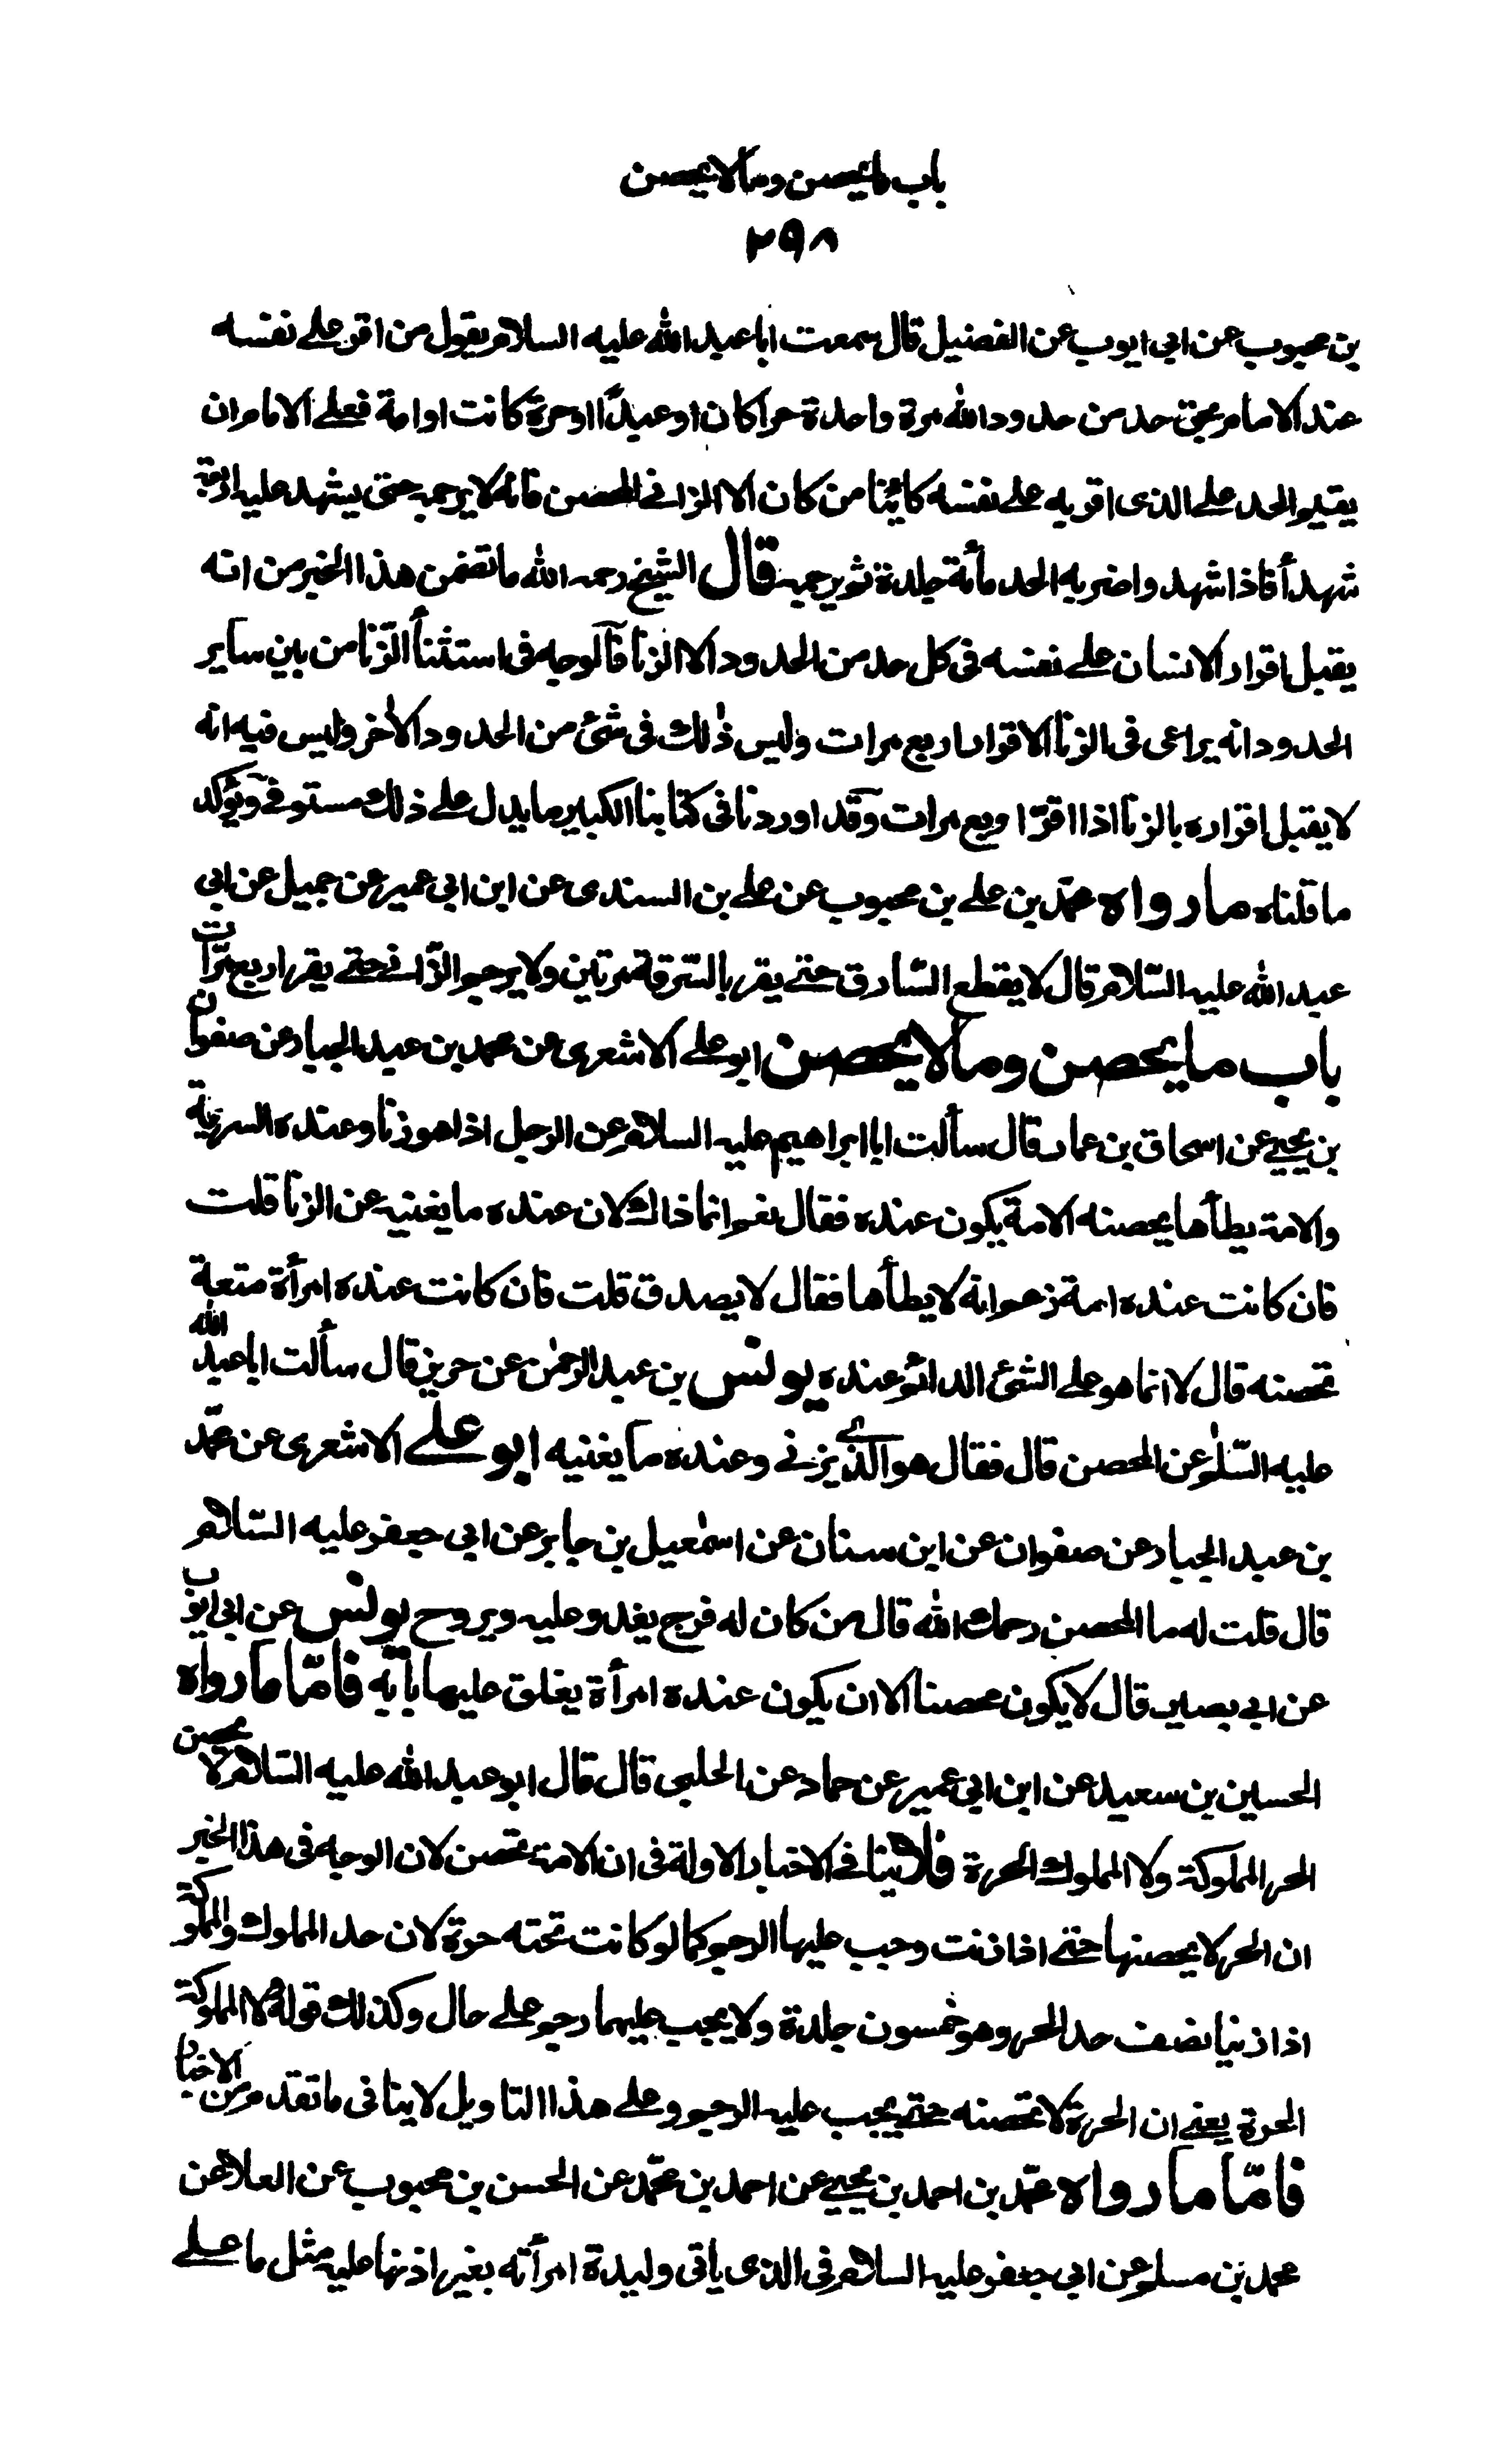 باب ما يحصن وما لا يحصن
٢٩٨
بن محبوب عن ابى ايوب عن الفضيل قال سمعت ابا عبد الله عليه السلام يقول من اقر على نفسه
عند الامام بحق حد من حدود الله مرة واحدة حرا كان او عبداً او حرة كانت او امة فعلى الامام ان
يقيم الحد على الذى اقر به على نفسه كائنا من كان الا الزانى المحصن فانه لا يرجمه حتى يشهد عليه اربعة
شهدأ فاذا شهدوا ضربه الحد مأئة جلدة ثم يرجمه قال الشيخ رحمه الله ما تضمن هذا الخبر من انه
يقبل اقرار الانسان على نفسه فى كل حد من الحدود الا الزنا فآلوجه فى استثنأ الزّنا من بين ساير
الحدود انه يراعى فى الزنا الاقرار اربع مرات وليس ذٰلك فى شئ من الحدود الاٰخر وليس فيه انه
لا يقبل اقراره بالزنا اذا اقرّ اربع مرات وقد اوردنا فى كتابنا الكبير ما يدل على ذلك مستوفى ويؤكد
ما قلناه ما رواه محمّد بن على بن محبوب عن على بن السندى عن ابن ابى عمير عن جميل عن ابى
عبد الله عليه السّلام قال لا يقطع السّارق حتى يقر بالسّرقة مرتين ولا يرجم الزّانى حتى يقر اربع مرّات
باب ما يحصن وما لا يحصن ابو على الاشعرى عن محمد بن عبد الجبار عن صفوان
بن يحيى عن اسحاق بن عمار قال سألت ابا ابراهيم عليه السلام عن الرجل اذا هو زنا وعنده السرية
والامة يطأها يحصنه الامة يكون عنده فقال نعم انما ذاك لان عنده ما يغنيه عن الزنا قلت
فان كانت عنده امة زعم انه لا يطأها فقال لا يصدق قلت فان كانت عنده امرأة متعة
تحصنه قال لا انما هو على الشئ الدائم عنده يونس بن عبد الرحمٰن عن حريز قال سألت ابا عبد الله
عليه السّلم عن المحصن قال فقال هو الذى يزنى وعنده ما يغنيه ابو على الاشعرى عن محمّد
بن عبد الجبار عن صفوان عن ابن سنان عن اسمٰعيل بن جابر عن ابى جعفر عليه السّلام
قال قلت له ما المحصن رحمك الله قال من كان له فرج يغدو عليه ويروح يونس عن ابى ايوب
عن ابى بصير قال لا يكون محصنا الا ان يكون عنده امرأة يغلق عليها بابه فامّا ما رواه
الحسين بن سعيد عن ابن ابى عمير عن حماد عن الحلبى قال قال ابو عبد الله عليه السّلام لا يحصن
الحر المملوكة ولا المملوك الحرة فلا ينافى الاخبار الاولة فى ان الامة تحصن لان الوجه فى هذا الخبر
ان الحر لا يحصنها حتى اذا زنت وجب عليها الرجم كما لو كانت تحته حرة لان حد المملوك والمملوكة
اذا زنيا نصف حد الحر وهو خمسون جلدة ولا يجب عليهما رجم على حال وكذلك قوله ولا المملوكة
الحرة يعنى ان الحرة لا تحصنه حتى يجب عليه الرجم وعلى هذا التاويل لا ينافى ما تقدم من الاخبار
فامّا ما رواه محمّد بن احمد بن يحيى عن احمد بن محمّد عن الحسن بن محبوب عن العلا عن
محمد بن مسلم عن ابى جعفر عليه السلام فى الذى ياتى وليدة امرأته بغير اذنها عليه مثل ما على